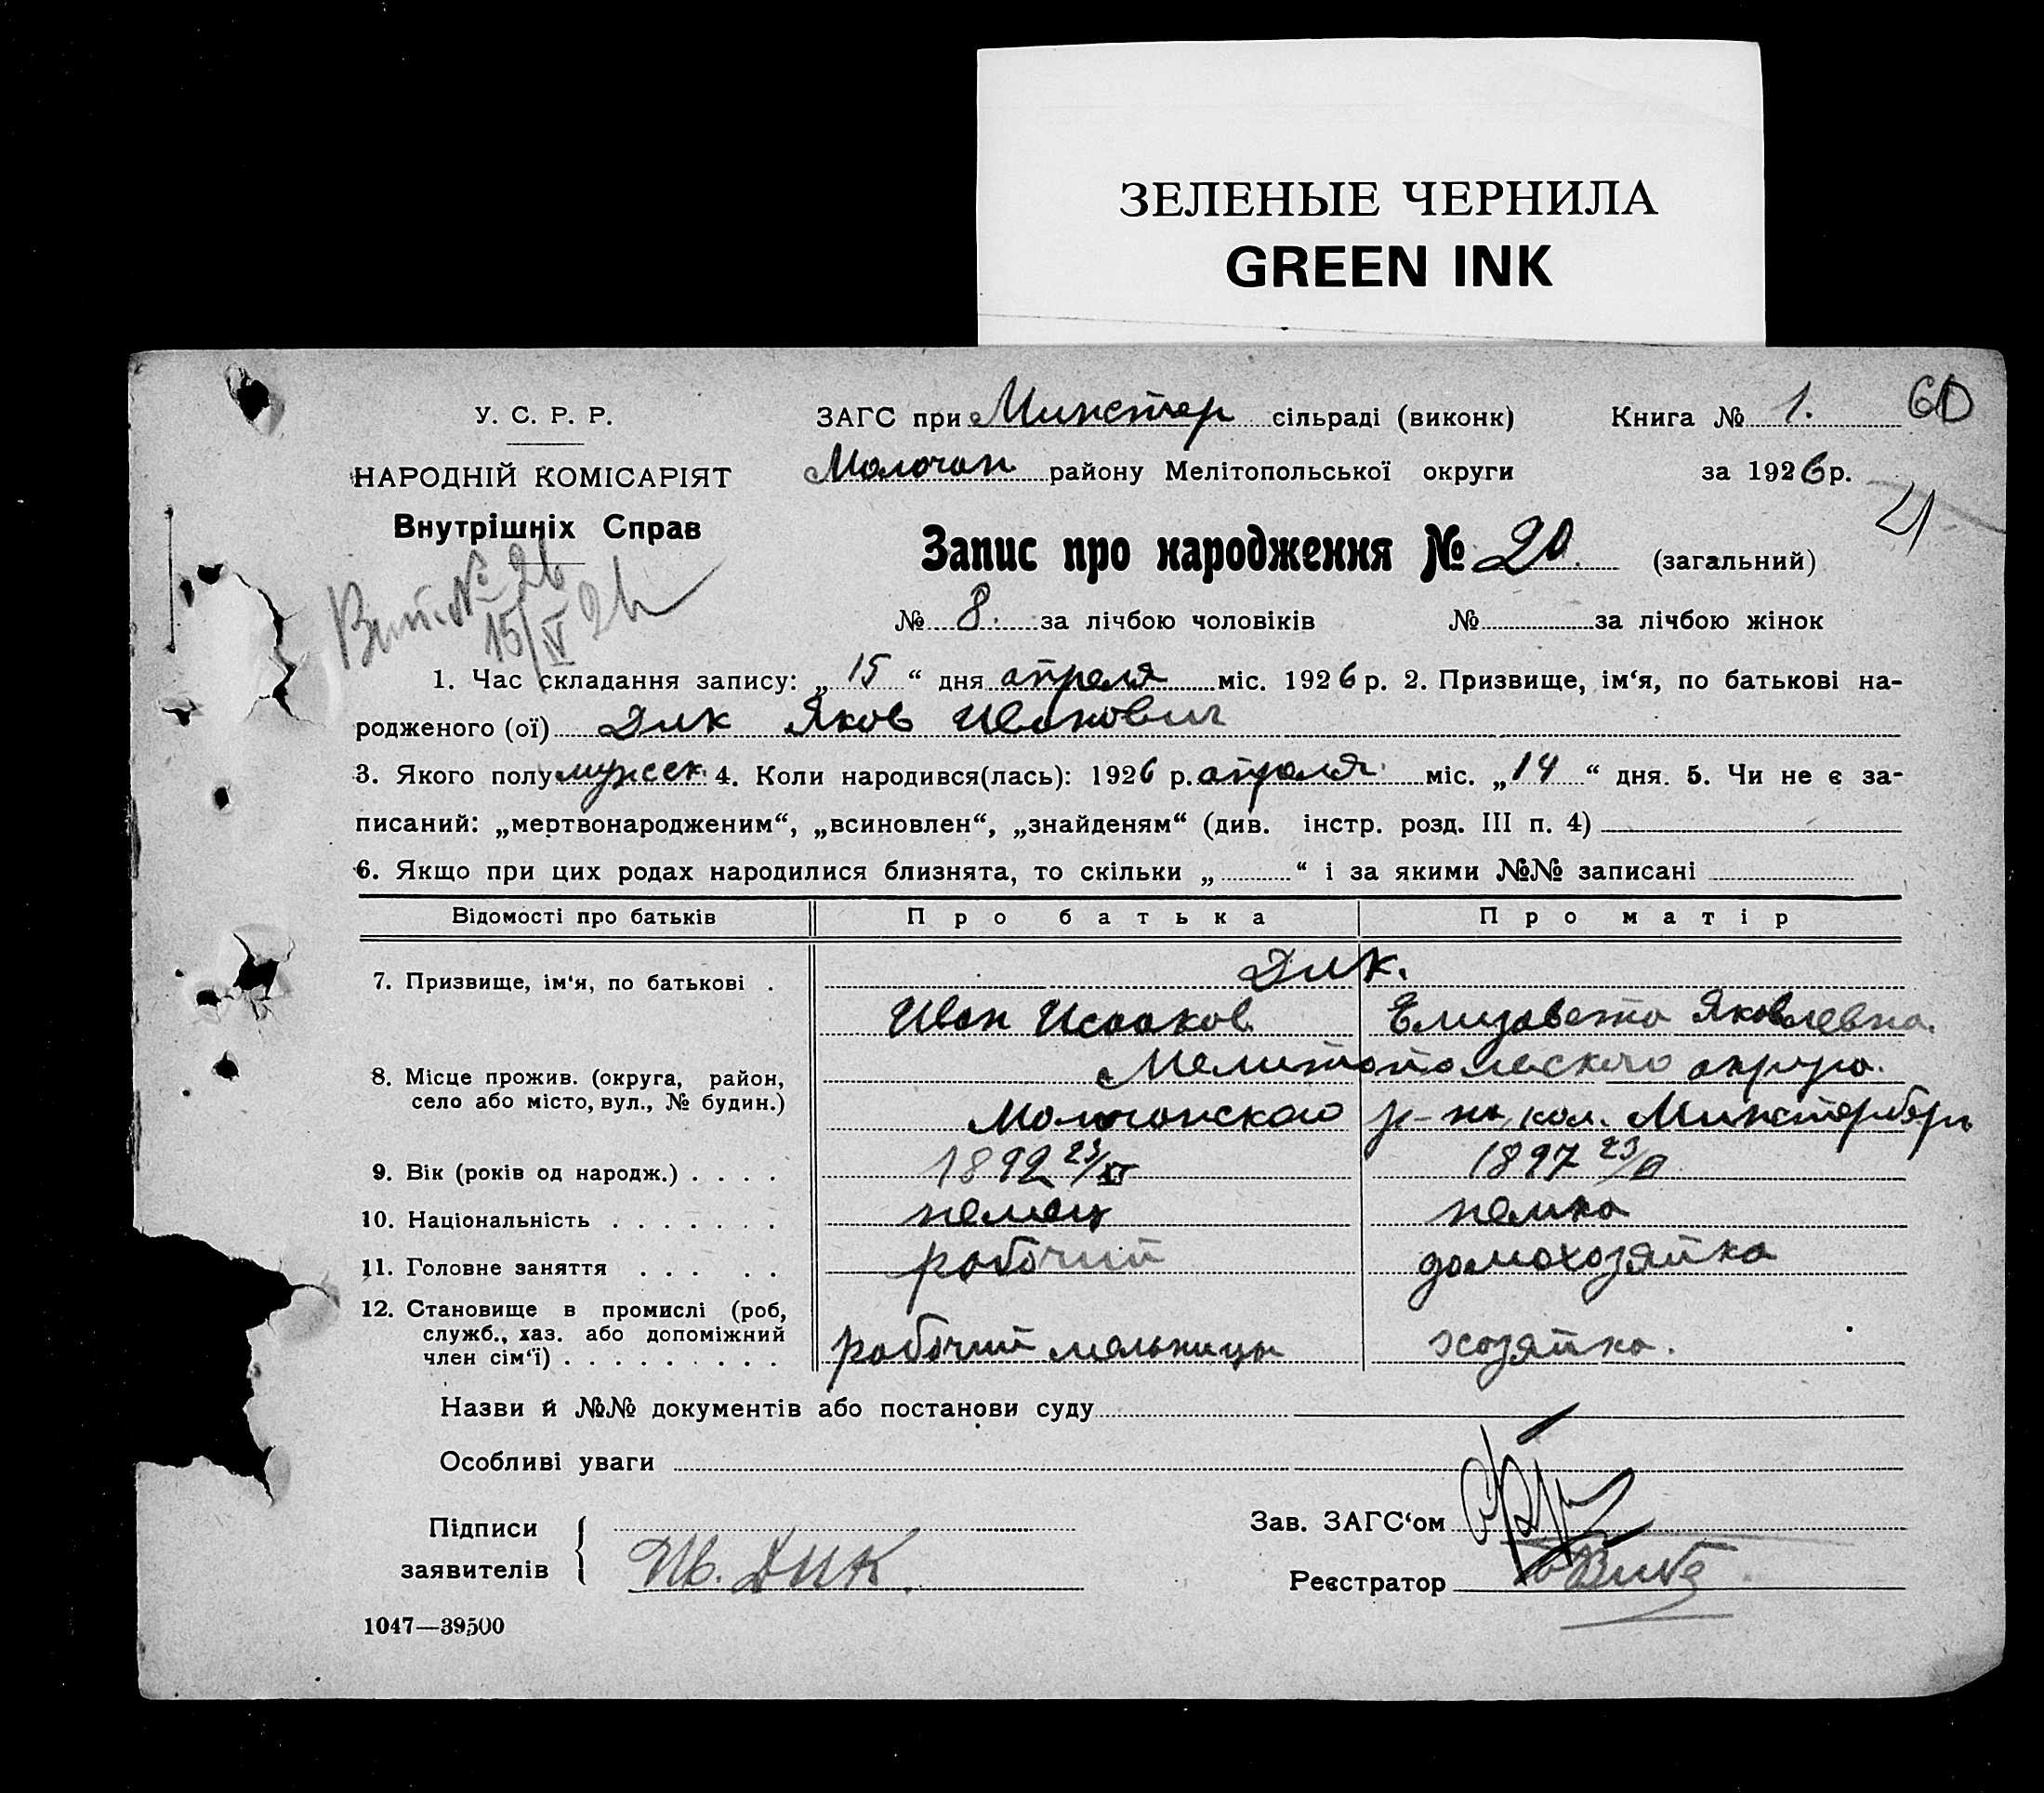 ЗЕЛЕНЫЕ ЧЕРНИЛА
GREEN INK
У. С. Р. Р.
НАРОДНІЙ КОМІСАРІЯТ
Внутрішніх Справ
ЗАГС при Минстер сільраді (виконк)
Молочан району Мелітопольської округи
Книга № 1.
60
за 1926 р.
Запис про народження № 20. (загальний)
№ 8. за лічбою чоловіків № за лічбою жінок
№ 26
15/IV 26
1. Час складання запису: „ 15 “ дня апреля міс. 1926 р. 2. Призвище, ім‘я, по батькові на-
родженого (ої) Дик Яков Иванович
3. Якого полу мужск. 4. Коли народився(лась): 1926 р. апреля міс. „ 14 “ дня. 5. Чи не є за-
писаний: „мертвонародженим“, „всиновлен“, „знайденям“ (див. інстр. розд. III п. 4)
6. Якщо при цих родах народилися близнята, то скільки „ “ і за якими №№ записані
Відомості про батьків Про батька Про матір
7. Призвище, ім‘я, по батькові . Дик.
Иван Исааков. Елизавета Яковлевна.
8. Місце прожив. (округа, район,
село або місто, вул., № будин.)
Мелитопольского округа.
Молочанского р-на, кол. Минстерберг
9. Вік (років од народж.) . . . . 1892 23/XI 1897 23/
10. Національність . . . . . . . немец немка
11. Головне заняття . . . . . рабочий домохозяйка
12. Становище в промислі (роб,
служб., хаз. або допоміжний
член сім‘ї) . . . . . . . . . рабочий мельницы хозяйка.
Назви й №№ документів або постанови суду
Особливі уваги
Підписи
заявителів
Ив. Дик.
Зав. ЗАГС‘ом
Реєстратор Вибе
1047—39500